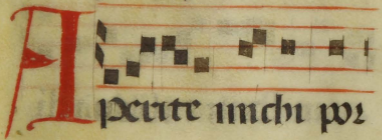 Aperite michi por